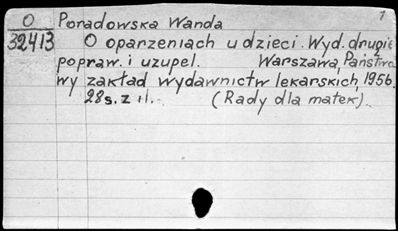 O Poradowska Wanda 1
32413 O oparzeniach u dzieci. Wyd. drugie
popraw. i uzupeł. Warszawa, Państwo
wy zakład wydawnictw lekarskich, 1956.
28 s. z il. (Rady dla matek).